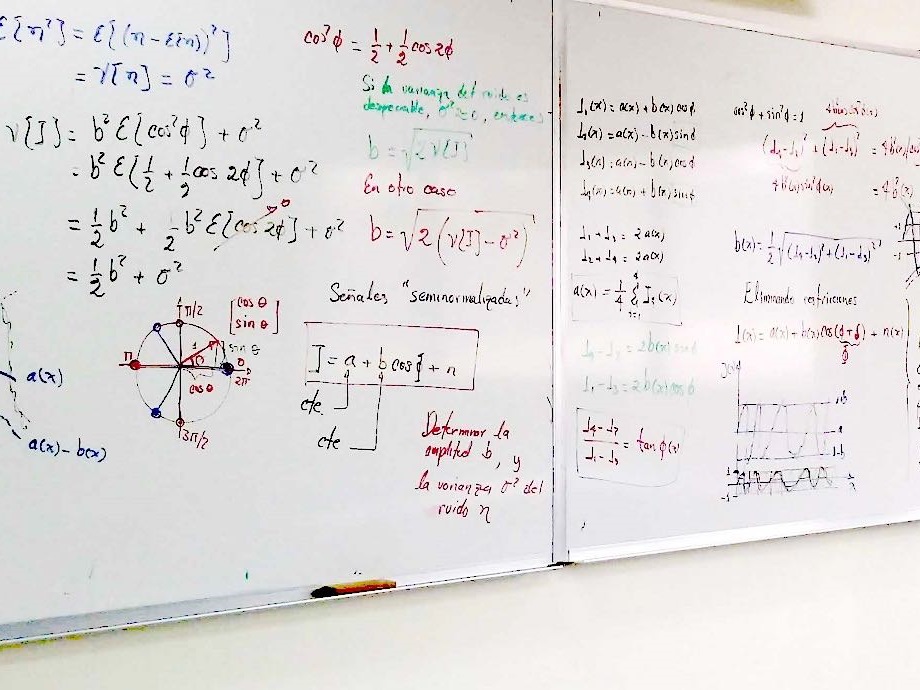 ε[n²] = ε[(n - ε[n])²]
= V[n] = σ²
V[I] = b² ε[cos²ϕ] + σ²
= b² ε[1/2 + 1/2 cos 2ϕ] + σ²
= 1/2 b² + 1/2 b² ε[cos 2ϕ] + σ²
0
= 1/2 b² + σ²
π/2
[cos θ
sin θ]
π
1
θ
sin θ
0
2π
cos θ
3π/2
a(x)
a(x) - b(x)
cos²ϕ = 1/2 + 1/2 cos 2ϕ
Si la varianza del ruido es
despreciable, σ² ≈ 0, entonces
b = √2 V[I]
En otro caso
b = √2 (V[I] - σ²)
Señales "seminormalizadas"
I = a + b cos ϕ + n
cte
cte
Determinar la
amplitud b, y
la varianza σ² del
ruido n
I₁(x) = a(x) + b(x) cos ϕ
I₂(x) = a(x) - b(x) sin ϕ
I₃(x) = a(x) - b(x) cos ϕ
I₄(x) = a(x) + b(x) sin ϕ
I₁ + I₃ = 2a(x)
I₂ + I₄ = 2a(x)
a(x) = 1/4 Σ I (x)
I₄ - I₂ = 2b(x) sin ϕ
I₁ - I₃ = 2b(x) cos ϕ
I₄ - I₂ / I₁ - I₃ = tan ϕ(x)
cos²ϕ + sin²ϕ = 1
(I₄ - I₂)² + (I₁ - I₃)² = 4b²(x)
= 4b²(x)
b(x) = 1/2 √(I₄ - I₂)² + (I₁ - I₃)²
Eliminando restricciones
I(x) = a(x) + b(x) cos(ϕ + δ) + n(x)
a
1
-1
x